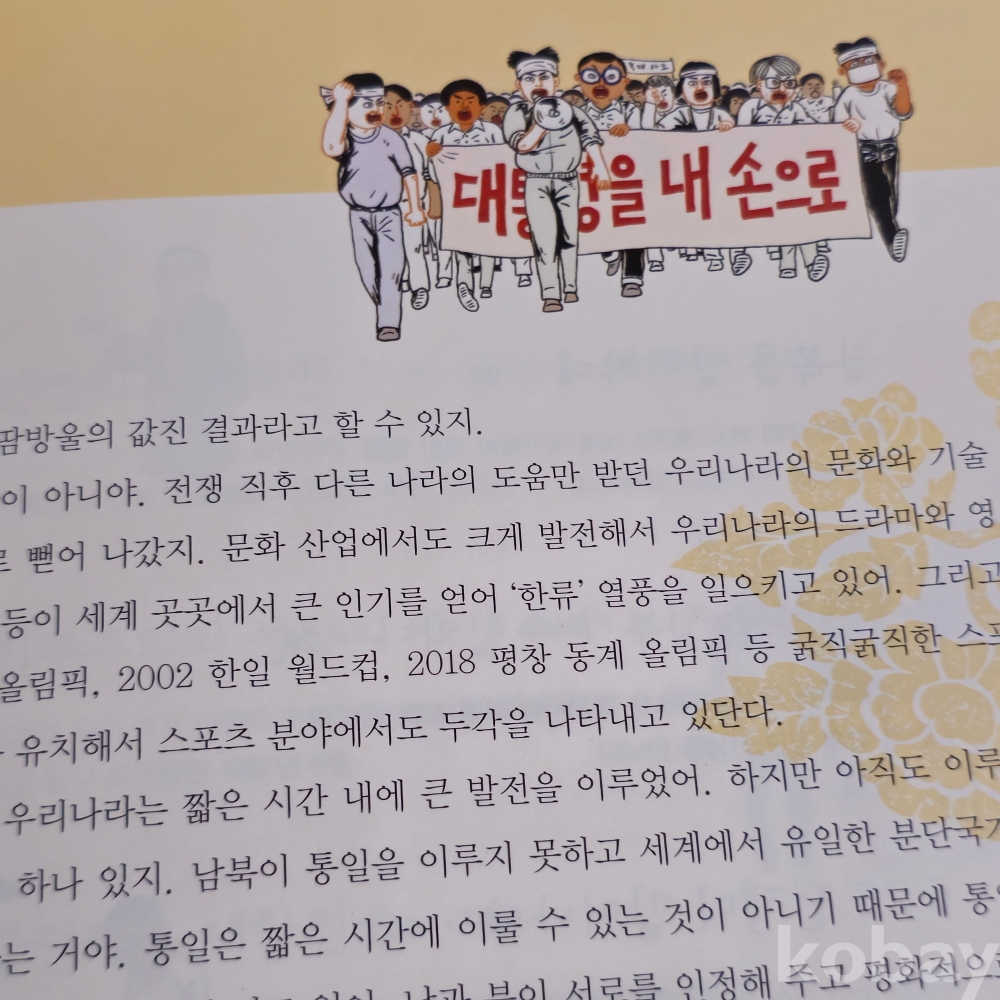 대통령을 내 손으로
땀방울의 값진 결과라고 할 수 있지.
이 아니야. 전쟁 직후 다른 나라의 도움만 받던 우리나라의 문화와 기술
로 뻗어 나갔지. 문화 산업에서도 크게 발전해서 우리나라의 드라마와 영
등이 세계 곳곳에서 큰 인기를 얻어 ‘한류’ 열풍을 일으키고 있어. 그리고
올림픽, 2002 한일 월드컵, 2018 평창 동계 올림픽 등 굵직굵직한 스포
유치해서 스포츠 분야에서도 두각을 나타내고 있단다.
우리나라는 짧은 시간 내에 큰 발전을 이루었어. 하지만 아직도 이루
하나 있지. 남북이 통일을 이루지 못하고 세계에서 유일한 분단국가
는 거야. 통일은 짧은 시간에 이룰 수 있는 것이 아니기 때문에 통일
남과 북이 서로를 인정해 주고 평화적으
kobay